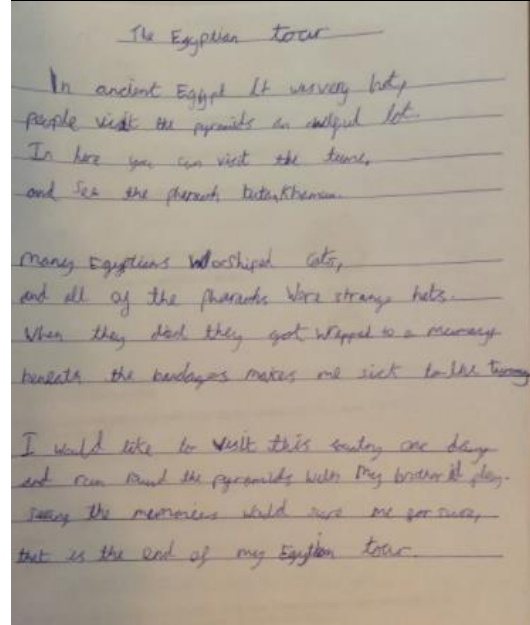 The Egyptian tour
In ancient Egypt It was very hot,
people visit the pyramids an lot.
In here you can visit the
and see the pharaoh
many Egyptians Worshiped Cats,
and all of the pharaohs Wore strange hats.
When they died they got Wrapped to a mummy
beneath the bandages makes me sick to the
I would like to visit this one day
and run round the pyramids with my brother
the would me for sure,
that is the end of my tour.